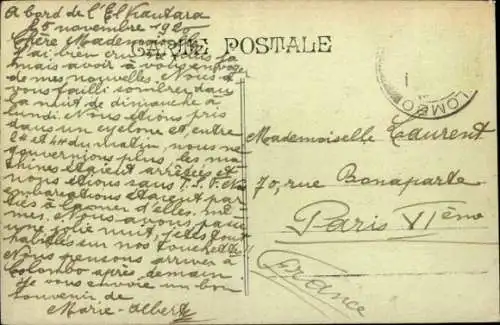 A bord de l'El Kantara
25 novembre 1920
Chère Mademoiselle
J'ai bien cru ne plus ja
mais avoir à vous envoyer
de mes nouvelles. Nous a
vons failli sombrer dans
la nuit de dimanche à
lundi. Nous étions pris
dans un cyclone et, entre
2h et 4h du matin, nous ne
gouvernions plus, les ma
chines étaient arrêtées et
nous étions sans T.S.F. Nos
embarcations étaient par
ties à d'elles mê
mes. Nous avons passé
une jolie nuit, tous
habillés sur nos couchettes!!
Nous pensons arriver à
Colombo après demain
Je vous envoie un bon
souvenir de
Marie-Albert
CARTE POSTALE
COLOMBO
Mademoiselle Laurent
70, rue Bonaparte
Paris VIème
France